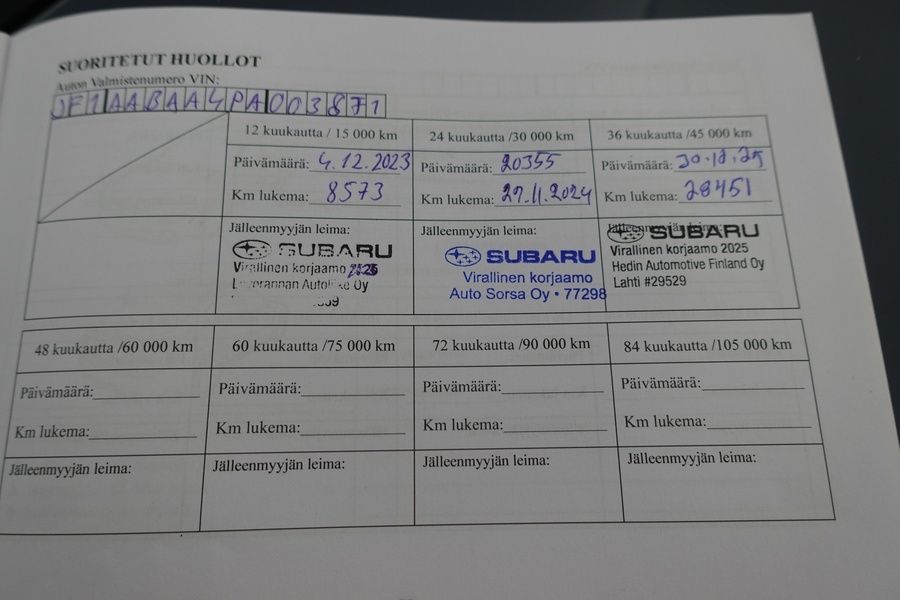 SUORITETUT HUOLLOT
Auton Valmistenumero VIN:
JF1AABAA4PA003871
12 kuukautta / 15 000 km
Päivämäärä: 4.12.2023
Km lukema: 8573
Jälleenmyyjän leima:
SUBARU
Virallinen korjaamo
Oy
24 kuukautta /30 000 km
Päivämäärä: 20355
Km lukema: 27.11.2024
Jälleenmyyjän leima:
SUBARU
Virallinen korjaamo
Auto Sorsa Oy • 77298
36 kuukautta /45 000 km
Päivämäärä: 30.12.25
Km lukema: 28451
Jälleenmyyjän leima:
SUBARU
Virallinen korjaamo 2025
Hedin Automotive Finland Oy
Lahti #29529
48 kuukautta /60 000 km
Päivämäärä:
Km lukema:
Jälleenmyyjän leima:
60 kuukautta /75 000 km
Päivämäärä:
Km lukema:
Jälleenmyyjän leima:
72 kuukautta /90 000 km
Päivämäärä:
Km lukema:
Jälleenmyyjän leima:
84 kuukautta /105 000 km
Päivämäärä:
Km lukema:
Jälleenmyyjän leima: